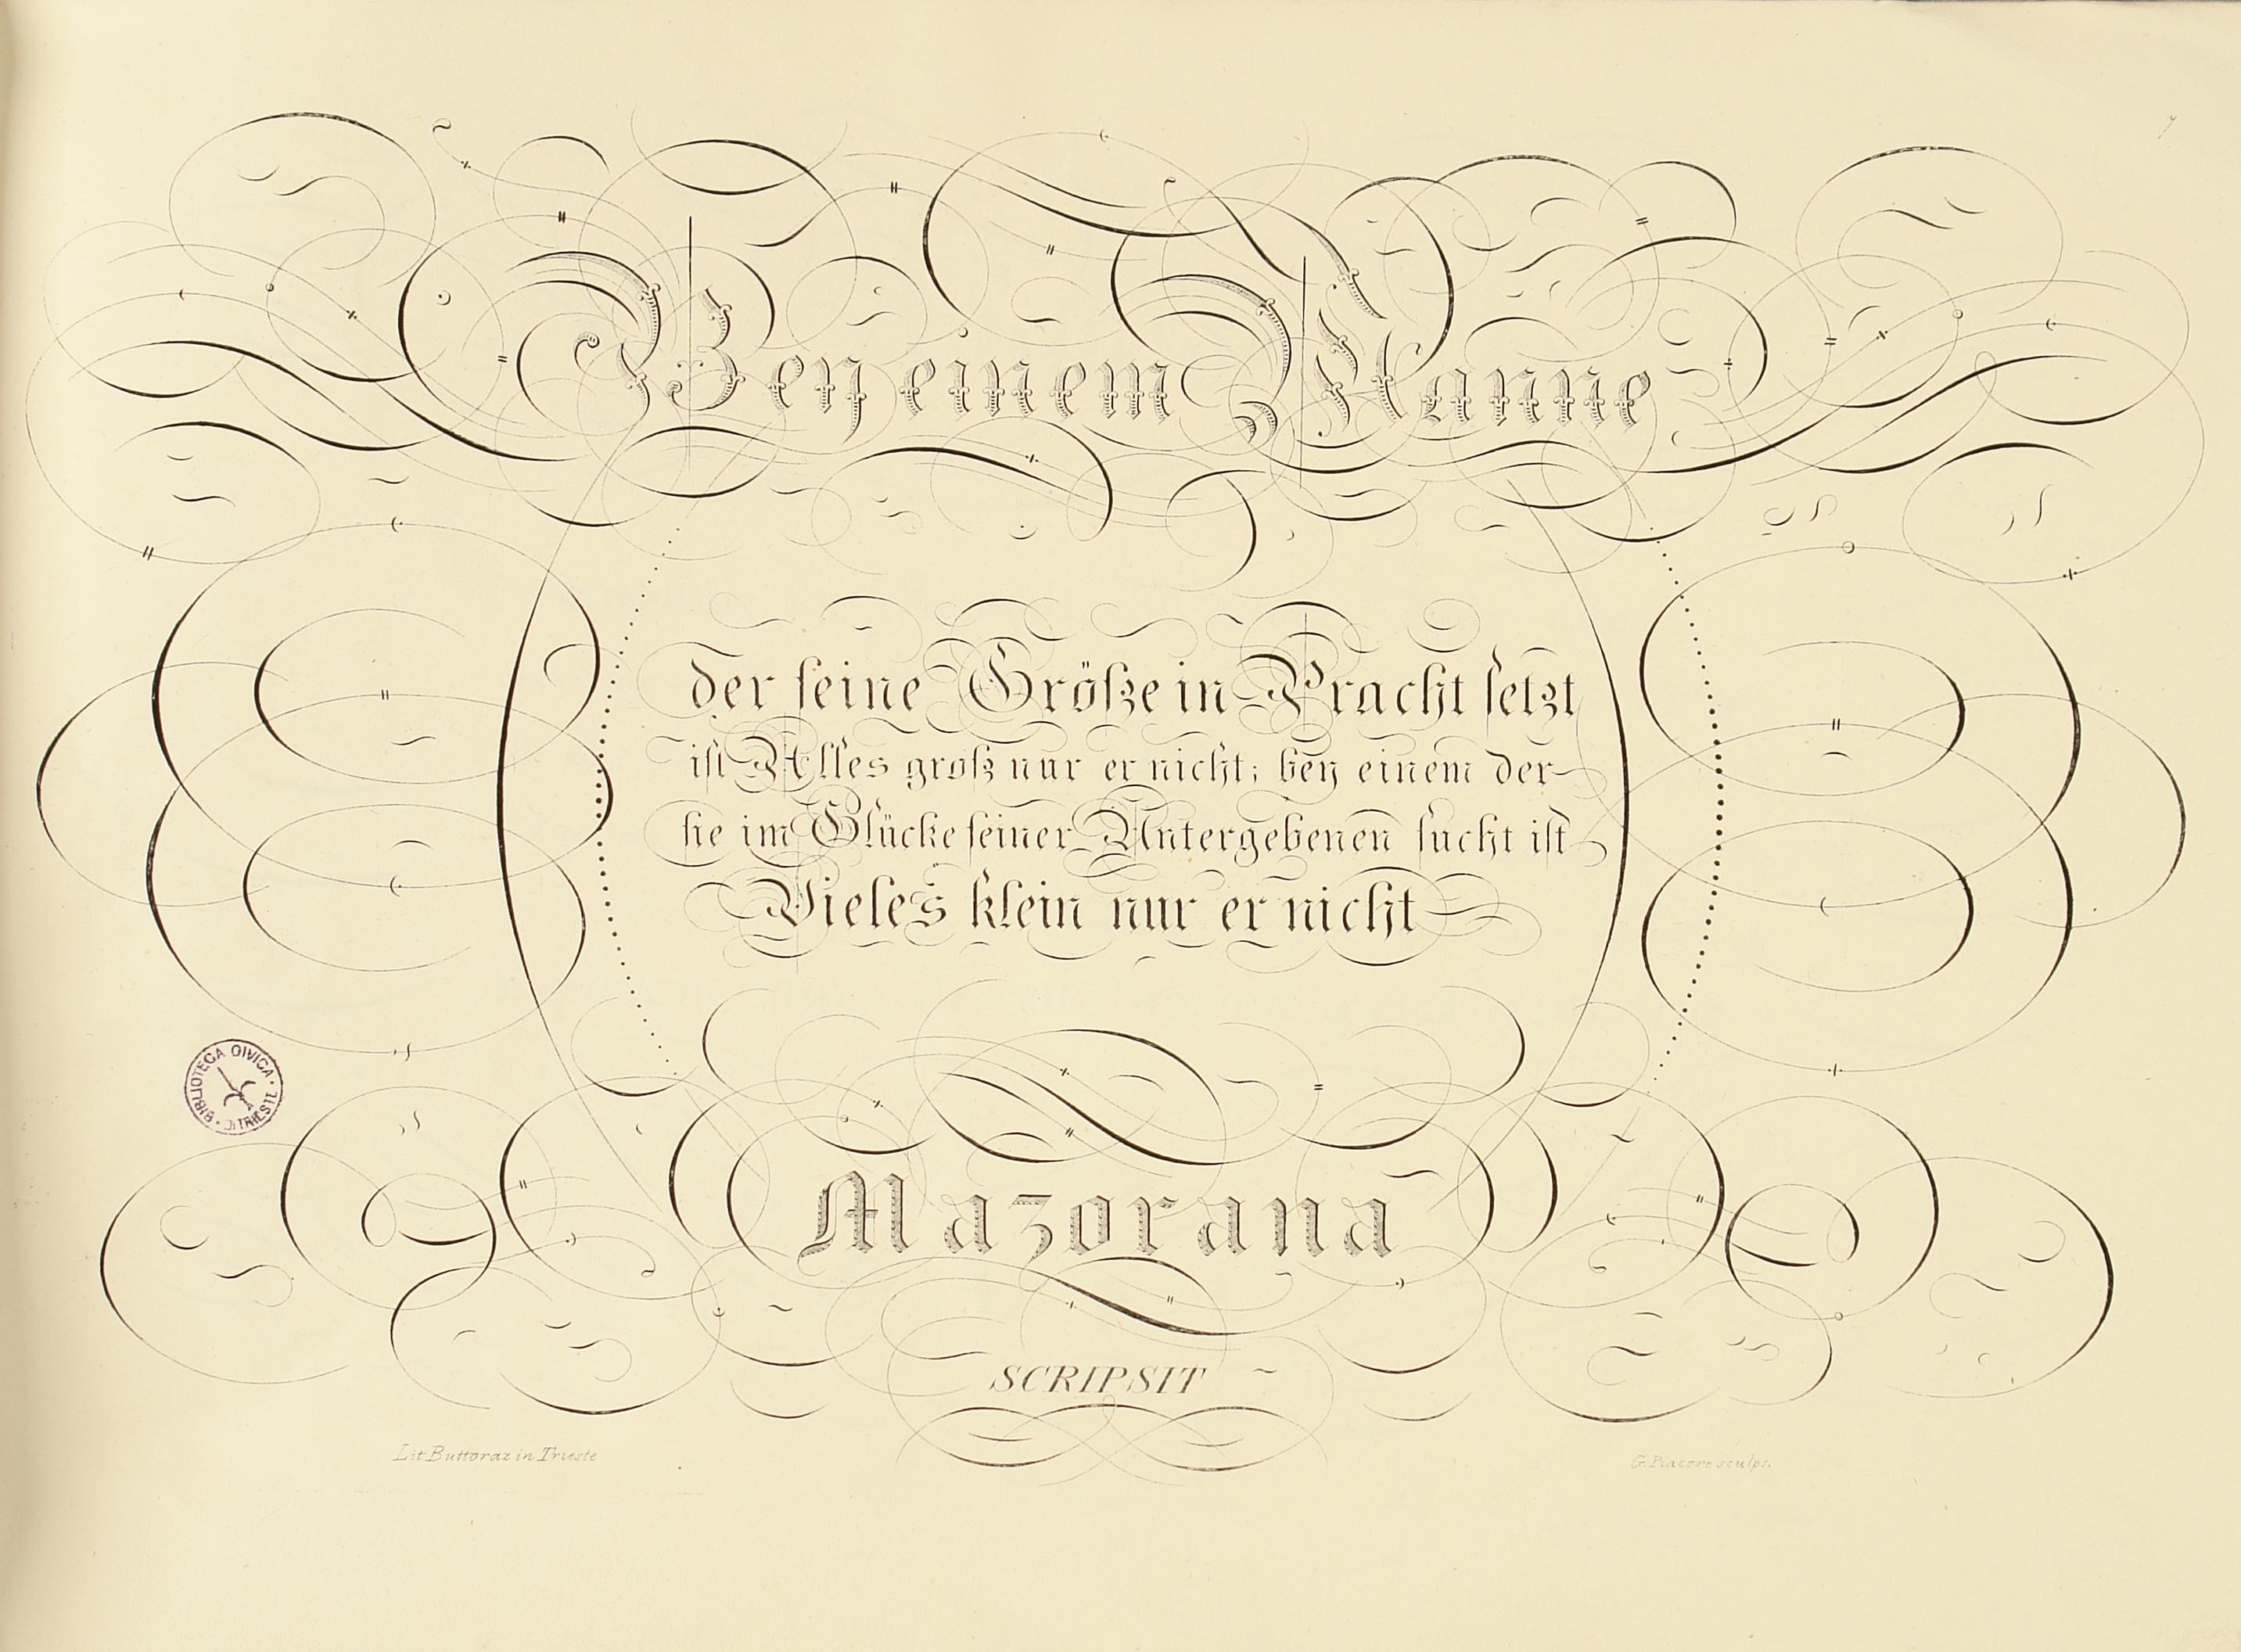 Bey einem Manne
der seine Größe in Pracht setzt
ist Alles groß nur er nicht; bey einem der
sie im Glücke seiner Untergebenen sucht ist
Vieles klein nur er nicht
Mazorana
SCRIPSIT
Lit. Buttoraz in Trieste
G. Piacere sculps.
BIBLIOTECA CIVICA · DI TRIESTE ·